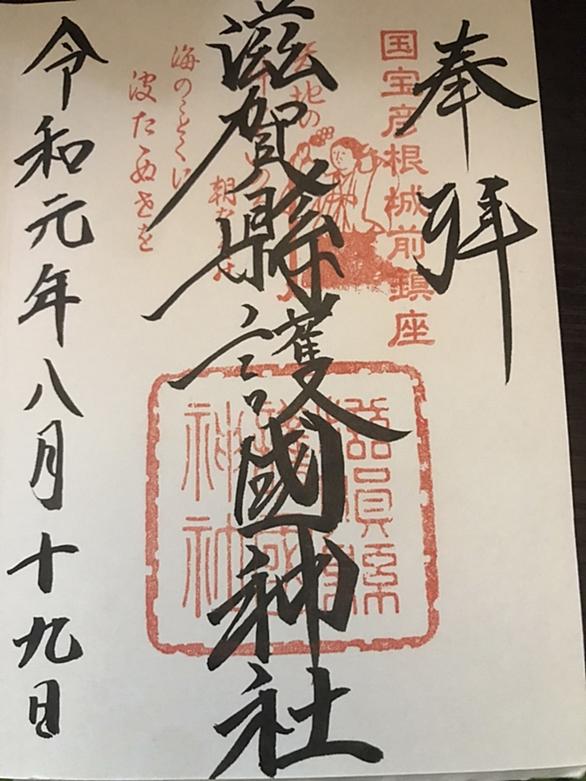 奉拝
国宝彦根城前鎮座
滋賀縣護國神社
海のことく
波たゝぬ世を
滋賀縣
護國
神社
令和元年八月十九日